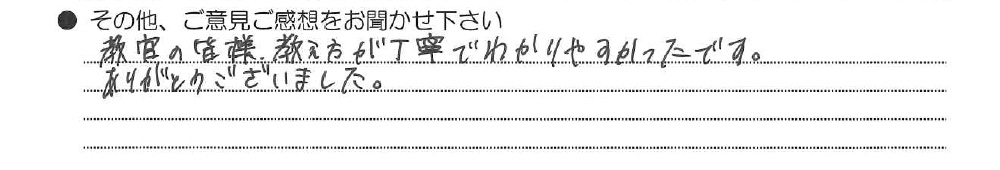 ● その他、ご意見ご感想をお聞かせ下さい
教官の皆様、教え方が丁寧でわかりやすかったです。
ありがとうございました。